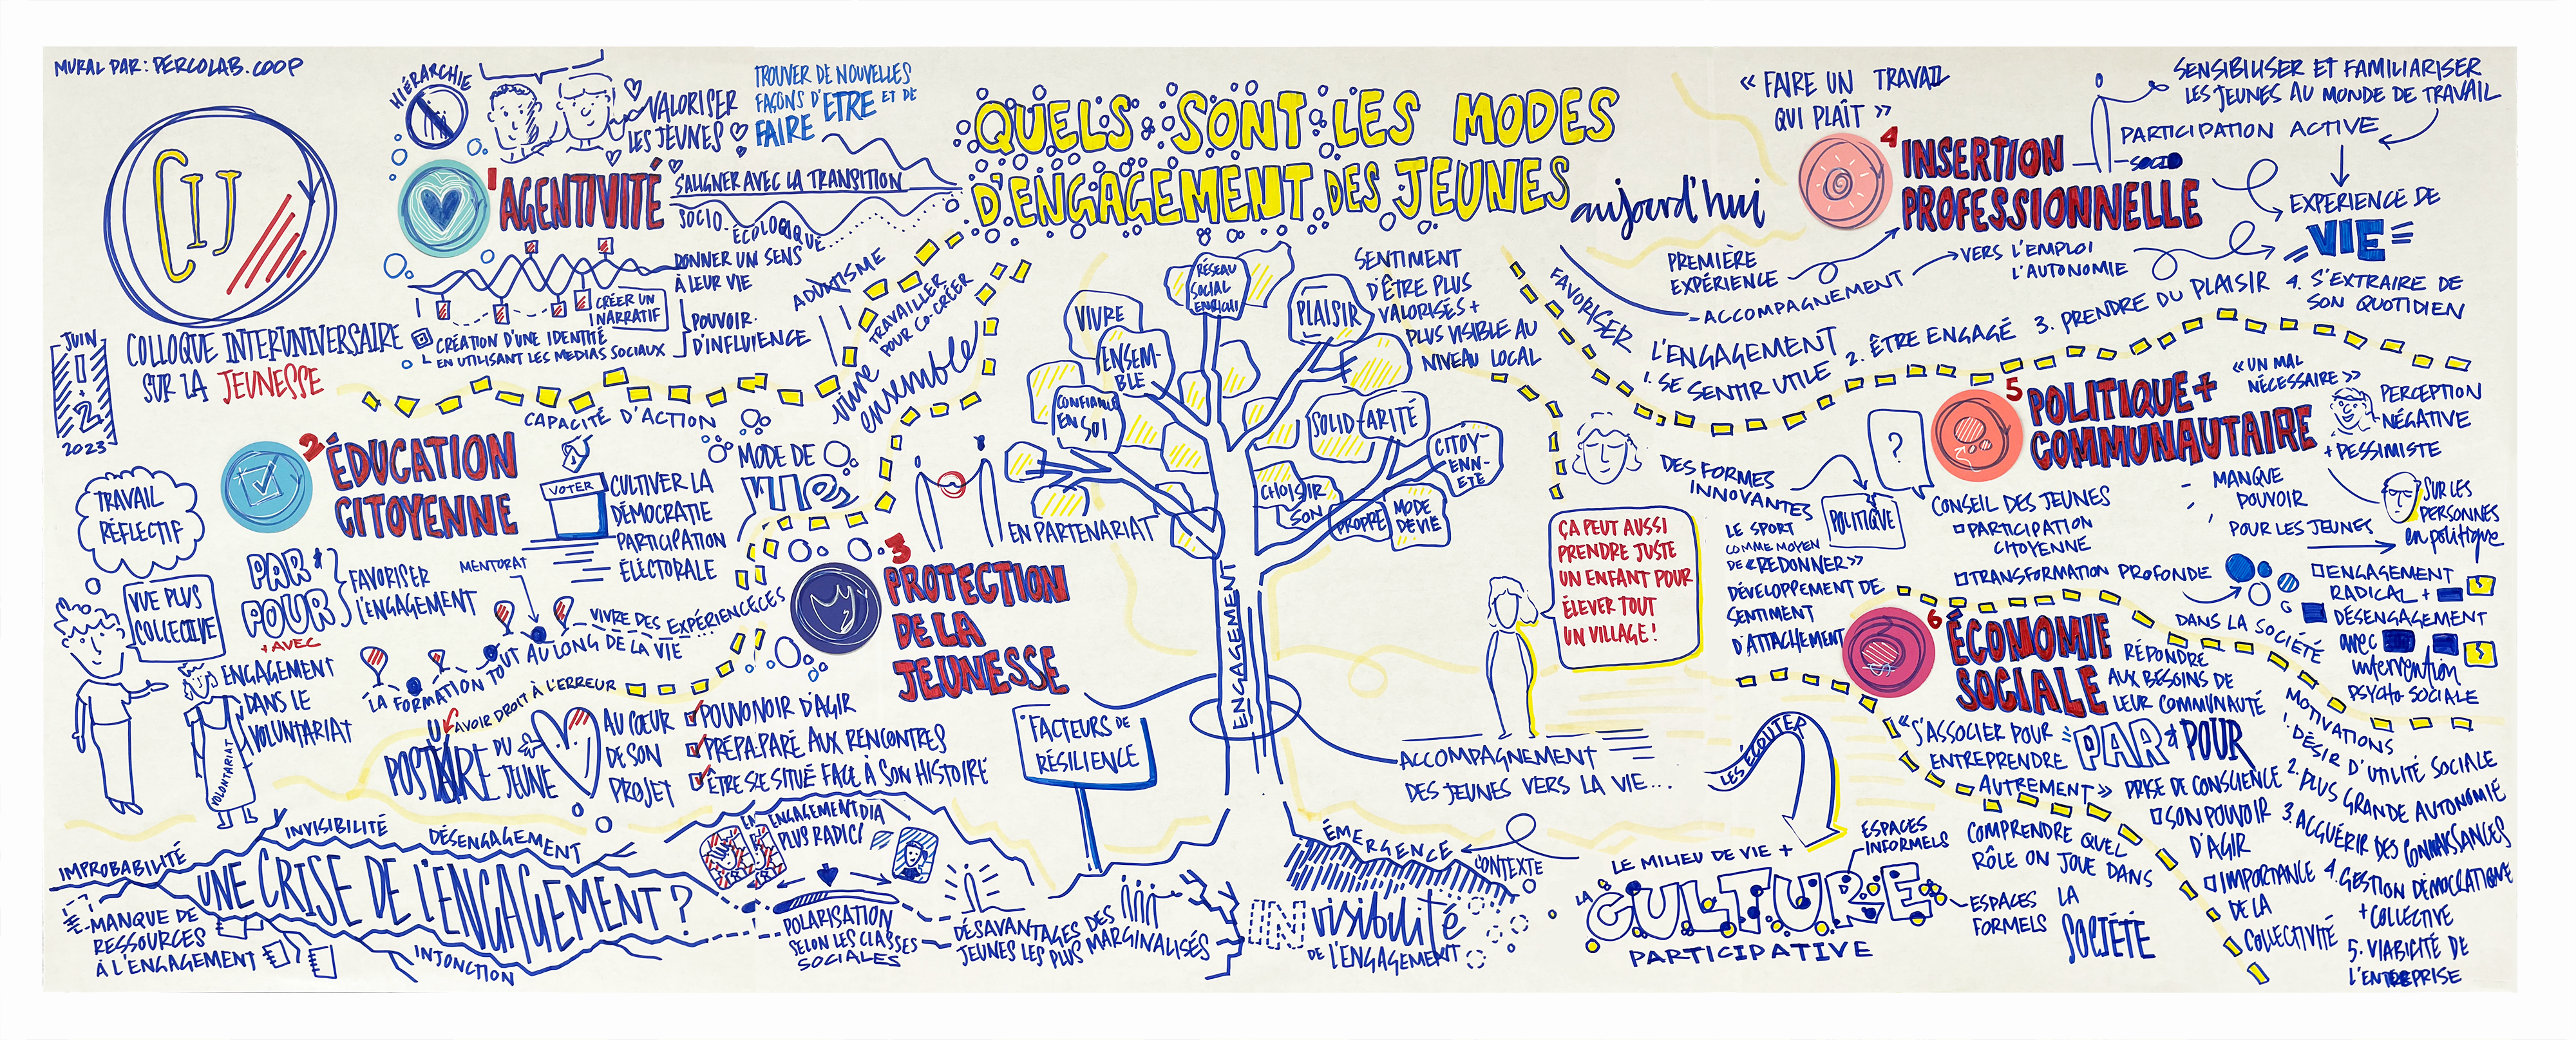 MURAL PAR: PERCOLAB.COOP
CIJ
COLLOQUE INTERUNIVERSAIRE
SUR LA JEUNESSE
JUIN
1
+
2
2023
QUELS SONT LES MODES
D'ENGAGEMENT DES JEUNES
aujourd'hui
HIÉRARCHIE
VALORISER
LES JEUNES
TROUVER DE NOUVELLES
FAÇONS D'ETRE ET DE
FAIRE
1 AGENTIVITÉ
S'ALIGNER AVEC LA TRANSITION
SOCIO-ÉCOLOGIQUE
DONNER UN SENS
À LEUR VIE
CRÉER UN
NARRATIF
CRÉATION D'UNE IDENTITÉ
EN UTILISANT LES MEDIAS SOCIAUX
POUVOIR
D'INFLUENCE
ADULTISME
TRAVAILLER
POUR CO-CRÉER
vivre
ensemble
CAPACITÉ D'ACTION
2 ÉDUCATION
CITOYENNE
VOTER
CULTIVER LA
DÉMOCRATIE
PARTICIPATION
ÉLECTORALE
MODE DE
VIES
TRAVAIL
RÉFLECTIF
VUE PLUS
COLLECTIVE
PAR +
POUR
+ AVEC
FAVORISER
L'ENGAGEMENT
MENTORAT
ENGAGEMENT
DANS LE
VOLONTARIAT
VOLONTARIAT
LA FORMATION TOUT AU LONG DE LA VIE
VIVRE DES EXPÉRIENCECES
AVOIR DROIT À L'ERREUR
DU
JEUNE
AU CŒUR
DE SON
PROJET
3 PROTECTION
DE LA
JEUNESSE
EN PARTENARIAT
POUVONOIR D'AGIR
PRÉPA-PARÉ AUX RENCONTRES
ÊTRE S.E SITUÉ FACE À SON HISTOIRE
FACTEURS DE
RÉSILIENCE
RÉSEAU
SOCIAL
ENRICHI
VIVRE
ENSEM-
BLE
CONFIANCE
EN SOI
PLAISIR
SOLID-ARITÉ
CITOY-
ENN-
ETÉ
CHOISIR
SON
PROPRE
MODE
DE VIE
ENGAGEMENT
SENTIMENT
D'ÊTRE PLUS
VALORISÉS +
PLUS VISIBLE AU
NIVEAU LOCAL
ÇA PEUT AUSSI
PRENDRE JUSTE
UN ENFANT POUR
ÉLEVER TOUT
UN VILLAGE!
ACCOMPAGNEMENT
DES JEUNES VERS LA VIE...
IMPROBABILITÉ
INVISIBILITÉ
DÉSENGAGEMENT
UNE CRISE DE L'ENGAGEMENT ?
MANQUE DE
RESSOURCES
À L'ENGAGEMENT
INJONCTION
ENGAGEMENT
PLUS
POLARISATION
SELON LES CLASSES
SOCIALES
DÉSAVANTAGES DES
JEUNES LES PLUS MARGINALISÉS
ÉMERGENCE
CONTEXTE
INvisibilité
DE L'ENGAGEMENT
LES ÉCOUTER
LE MILIEU DE VIE +
ESPACES
INFORMELS
LA
CULTURE
PARTICIPATIVE
ESPACES
FORMELS
« FAIRE UN TRAVAIL
QUI PLAÎT »
4 INSERTION
PROFESSIONNELLE
SENSIBILISER ET FAMILIARISER
LES JEUNES AU MONDE DE TRAVAIL
PARTICIPATION ACTIVE
EXPERIENCE DE
VIE
PREMIÈRE
EXPÉRIENCE
ACCOMPAGNEMENT
VERS L'EMPLOI
L'AUTONOMIE
FAVORISER
L'ENGAGEMENT
1. SE SENTIR UTILE 2. ÊTRE ENGAGÉ 3. PRENDRE DU PLAISIR 4. S'EXTRAIRE DE
SON QUOTIDIEN
5 POLITIQUE +
COMMUNAUTAIRE
« UN MAL
NÉCESSAIRE »
PERCEPTION
NÉGATIVE
+ PESSIMISTE
MANQUE
POUVOIR
POUR LES JEUNES
SUR LES
PERSONNES
en politique
DES FORMES
INNOVANTES
?
POLITIQUE
LE SPORT
COMME MOYEN
DE « REDONNER »
DÉVELOPPEMENT DE
SENTIMENT
D'ATTACHEMENT
CONSEIL DES JEUNES
PARTICIPATION
CITOYENNE
TRANSFORMATION PROFONDE
DANS LA SOCIÉTÉ
ENGAGEMENT
RADICAL +
DÉSENGAGEMENT
avec
intervention
PSYCHO SOCIALE
6 ÉCONOMIE
SOCIALE
RÉPONDRE
AUX BESOINS DE
LEUR COMMUNAUTÉ
« S'ASSOCIER POUR
ENTREPRENDRE
AUTREMENT »
PAR + POUR
PRISE DE CONSCIENCE
SON POUVOIR
D'AGIR
IMPORTANCE
DE LA
COLLECTIVITÉ
COMPRENDRE QUEL
RÔLE ON JOUE DANS
LA
SOCIÉTÉ
MOTIVATIONS
1. DÉSIR D'UTILITÉ SOCIALE
2. PLUS GRANDE AUTONOMIE
3. ACQUÉRIR DES CONNAISSANCES
4. GESTION DÉMOCRATIQUE
+ COLLECTIVE
5. VIABILITÉ DE
L'ENTREPRISE